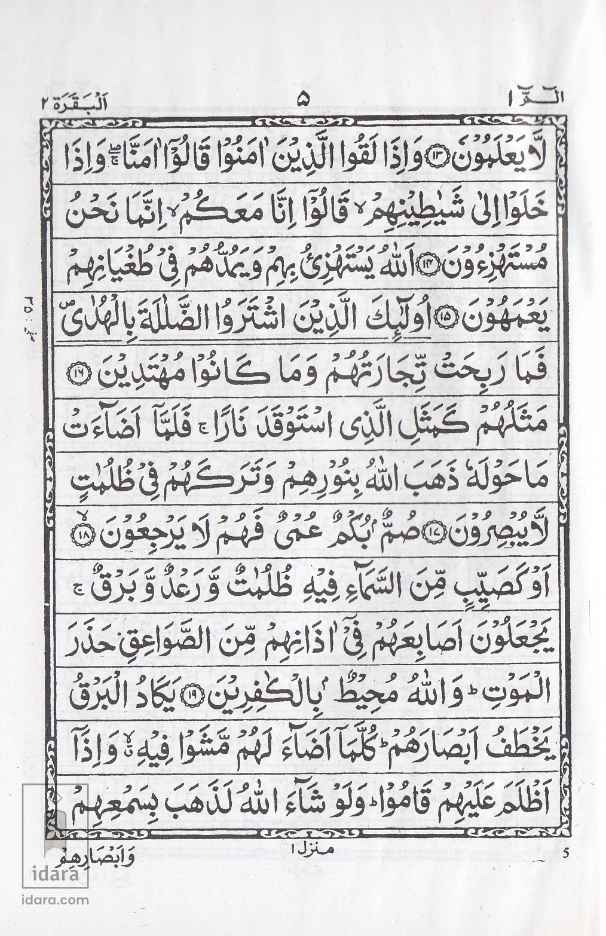 الٓمّٓ ١
٥
اَلْبَقَرَة ٢
لَّا يَعْلَمُوْنَ ﴿۱۳﴾ وَاِذَا لَقُوا الَّذِيْنَ اٰمَنُوْا قَالُوْٓا اٰمَنَّا ۖۚ وَاِذَا
خَلَوْا اِلٰى شَيٰطِيْنِهِمْ ۙ قَالُوْٓا اِنَّا مَعَكُمْ ۙ اِنَّمَا نَحْنُ
مُسْتَهْزِءُوْنَ ﴿۱۴﴾ اَللّٰهُ يَسْتَهْزِئُ بِهِمْ وَيَمُدُّهُمْ فِيْ طُغْيَانِهِمْ
يَعْمَهُوْنَ ﴿۱۵﴾ اُولٰٓئِكَ الَّذِيْنَ اشْتَرَوُا الضَّلٰلَةَ بِالْهُدٰى ۪
فَمَا رَبِحَتْ تِّجَارَتُهُمْ وَمَا كَانُوْا مُهْتَدِيْنَ ﴿۱۶﴾
مَثَلُهُمْ كَمَثَلِ الَّذِى اسْتَوْقَدَ نَارًا ۚ فَلَمَّآ اَضَآءَتْ
مَا حَوْلَهٗ ذَهَبَ اللّٰهُ بِنُوْرِهِمْ وَتَرَكَهُمْ فِيْ ظُلُمٰتٍ
لَّا يُبْصِرُوْنَ ﴿۱۷﴾ صُمٌّۢ بُكْمٌ عُمْيٌ فَهُمْ لَا يَرْجِعُوْنَ ۙ﴿۱۸﴾
اَوْ كَصَيِّبٍ مِّنَ السَّمَآءِ فِيْهِ ظُلُمٰتٌ وَّرَعْدٌ وَّبَرْقٌ ۚ
يَجْعَلُوْنَ اَصَابِعَهُمْ فِيْٓ اٰذَانِهِمْ مِّنَ الصَّوَاعِقِ حَذَرَ
الْمَوْتِ ؕ وَاللّٰهُ مُحِيْطٌۢ بِالْكٰفِرِيْنَ ﴿۱۹﴾ يَكَادُ الْبَرْقُ
يَخْطَفُ اَبْصَارَهُمْ ؕ كُلَّمَآ اَضَآءَ لَهُمْ مَّشَوْا فِيْهِ ۙ وَاِذَآ
اَظْلَمَ عَلَيْهِمْ قَامُوْا ؕ وَلَوْ شَآءَ اللّٰهُ لَذَهَبَ بِسَمْعِهِمْ
5
منزل ١
وَاَبْصَارِهِمْ
idara
idara.com